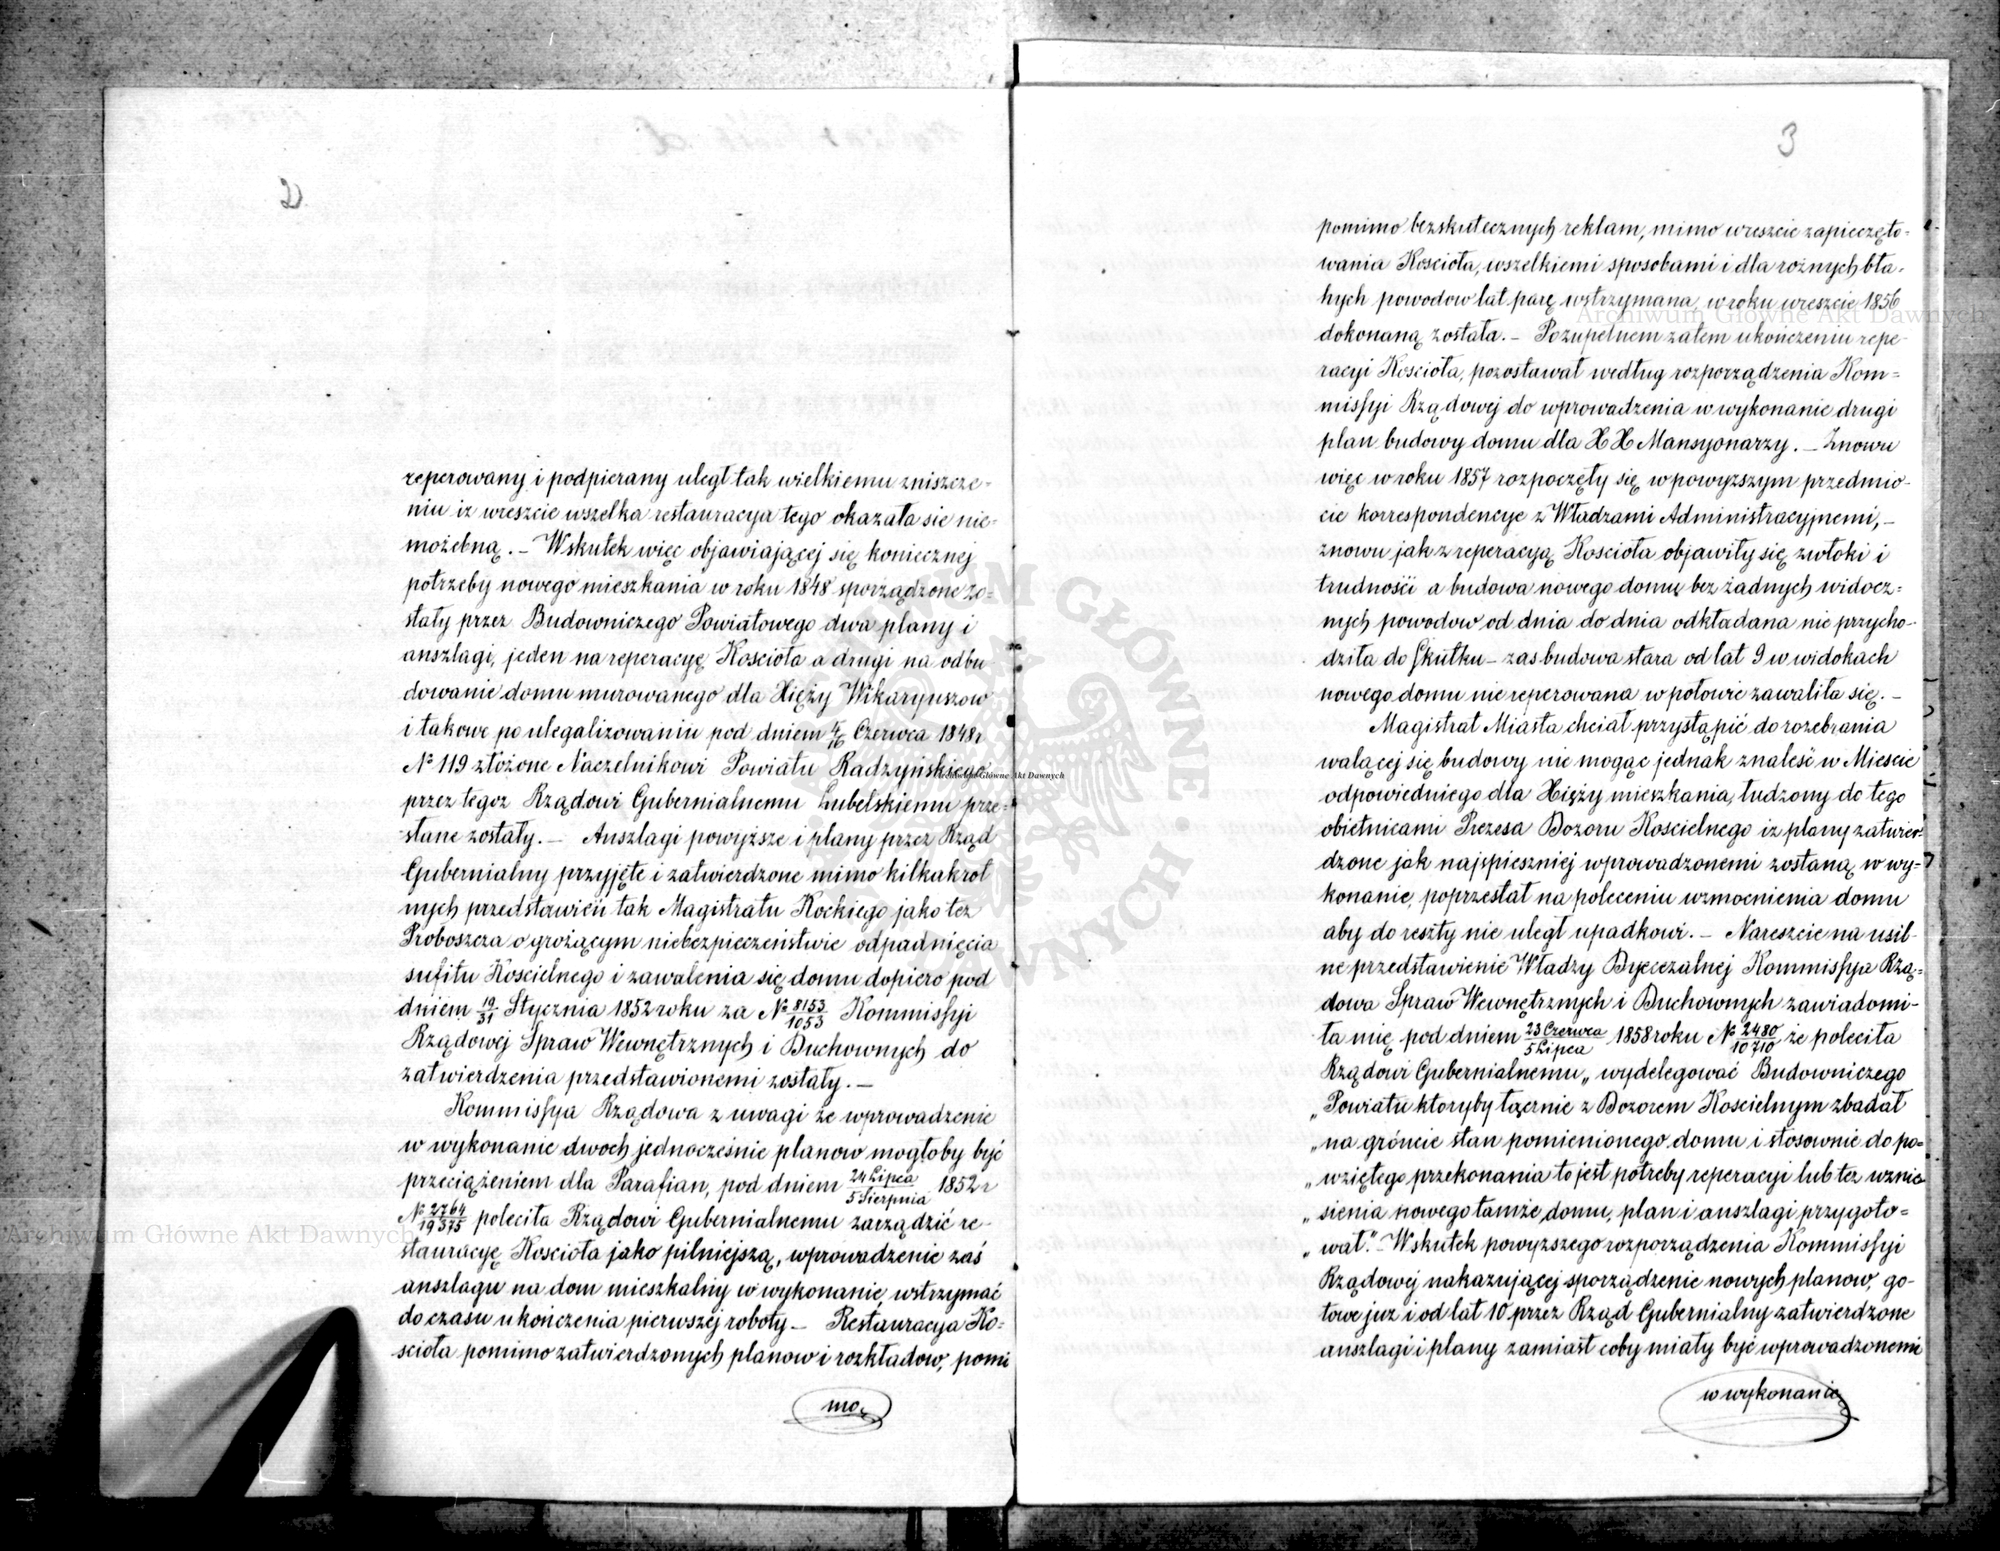 2
reperowany i podpierany uległ tak wielkiemu zniszcze-
niu iż wreszcie wszelka restauracya tego okazała sie nie-
możebną. – Wskutek więc objawiającej się koniecznej
potrzeby nowego mieszkania w roku 1848 sporządzone zo-
stały przez Budowniczego Powiatowego dwa plany i
anszlagi, jeden na reperacyę Kościoła a drugi na odbu
dowanie domu murowanego dla Xięży Wikaryuszow
i takowe po ulegalizowaniu pod dniem 4/16 Czerwca 1848r
No 119 złożone Naczelnikowi Powiatu Radzyńskiego
przez tegoz Rządowi Gubernialnemu Lubelskiemu prze-
słane zostały. – Anszlagi powyższe i plany przez Rząd
Gubernialny przyjęte i zatwierdzone mimo kilkakrot
nych przedstawień tak Magistratu Kockiego jako tez
Proboszcza o grożącym niebezpieczeństwie odpadnięcia
sufitu Kościelnego i zawalenia się domu dopiero pod
dniem 19/31 Stycznia 1852 roku za No 8153/1053 Kommissyi
Rządowej Spraw Wewnętrznych i Duchownych do
zatwierdzenia przedstawionemi zostały. –
Kommissya Rządowa z uwagi że wprowadzenie
w wykonanie dwoch jednocześnie planow mogłoby być
przeciążeniem dla Parafian, pod dniem 24 Lipca/5 Sierpnia 1852r
No 2764/19375 poleciła Rządowi Gubernialnemu zarządzić re-
stauracyę Kościoła jako pilniejszą, wprowadzenie zaś
anszlagu na dom mieszkalny w wykonanie wstrzymać
do czasu ukończenia pierwszej roboty – Restauracya Ko-
ścioła pomimo zatwierdzonych planow i rozkładow, pomi
mo
3
pomimo bezskutecznych reklam, mimo wreszcie zapieczęto-
wania Kościoła, wszelkiemi sposobami i dla rożnych bła-
hych powodow lat parę wstrzymana, w roku wreszcie 1856
dokonaną została. – Po zupełnem zatem ukończeniu repe-
racyi Kościoła, pozostawał według rozporządzenia Kom-
missyi Rządowej do wprowadzenia w wykonanie drugi
plan budowy domu dla XX Mansyonarzy. – Znowu
więc w roku 1857 rozpoczęły się w powyższym przedmio-
cie korrespondencye z Władzami Administracyjnemi, –
znowu jak z reperacyą Kościoła objawiły się zwłoki i
trudności a budowa nowego domu bez żadnych widocz-
nych powodow od dnia do dnia odkładana nie przycho-
dziła do skutku – zas budowa stara od lat 9 w widokach
nowego domu nie reperowana w połowie zawaliła się. –
Magistrat Miasta chciał przystąpić do rozebrania
walącej się budowy nie mogąc jednak znaleść w Mieście
odpowiedniego dla Xięży mieszkania, łudzony do tego
obietnicami Prezesa Dozoru Kościelnego iż plany zatwier-
dzone jak najspieszniej wprowadzonemi zostaną w wy-
konanie, poprzestał na poleceniu wzmocnienia domu
aby do reszty nie uległ upadkowi. – Nareszcie na usil-
ne przedstawienie Władzy Dyecezalnej Kommissya Rzą-
dowa Spraw Wewnętrznych i Duchownych zawiadomi-
ła mię pod dniem 23 Czerwca/5 Lipca 1858 roku No 2480/10710 że poleciła
Rządowi Gubernialnemu „ wydelegować Budowniczego
„ Powiatu ktoryby łącznie z Dozorem Kościelnym zbadał
„ na gróncie stan pomienionego domu i stosownie do po-
„ wziętego przekonania to jest potrzeby reperacyi lub tez wznie
„ sienia nowego tamże domu, plan i anszlagi przygoto-
„ wał." – Wskutek powyższego rozporządzenia Kommissyi
Rządowej nakazującej sporządzenie nowych planow, go-
towe juz i od lat 10 przez Rząd Gubernialny zatwierdzone
anszlagi i plany zamiast coby miały być wprowadzonemi
w wykonanie
Archiwum Główne Akt Dawnych
Archiwum Główne Akt Dawnych
Archiwum Główne Akt Dawnych
ARCHIWUM GŁÓWNE · AKT DAWNYCH ·